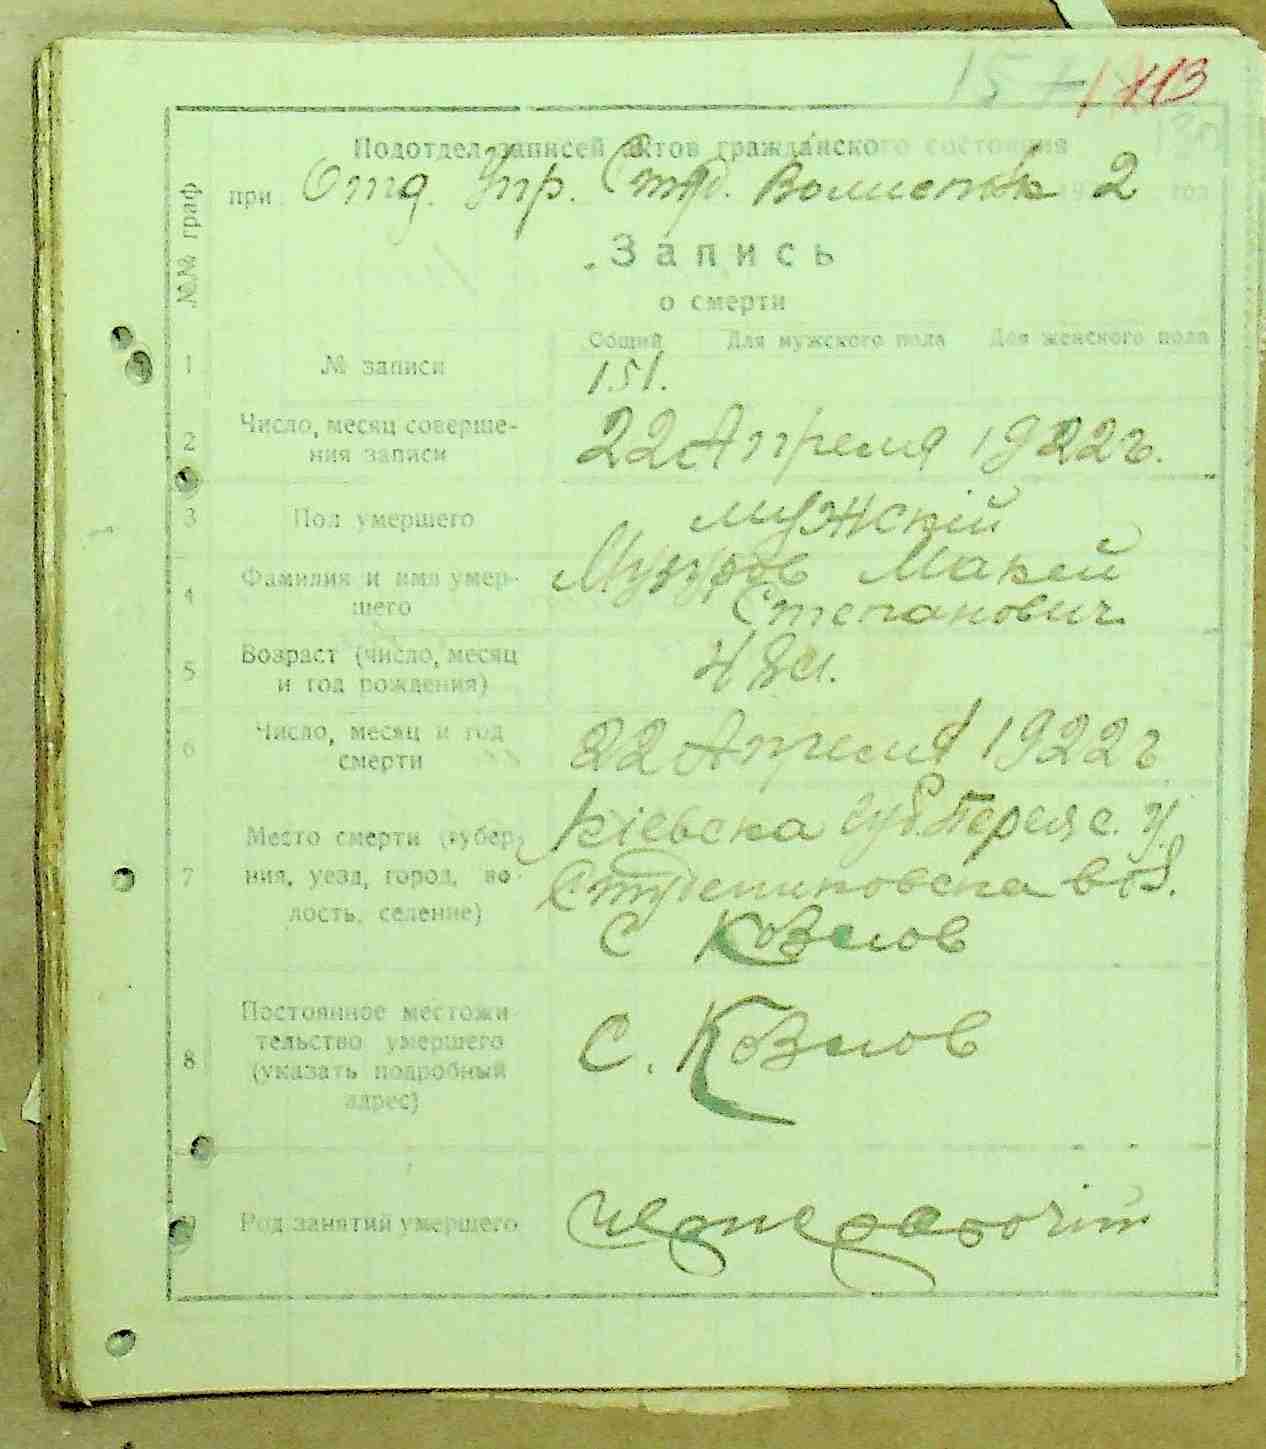 113
Подотдел записей актов гражданского состояния
при Отд. Упр. Волисполк 2 год
№№ граф
Запись
о смерти
Общий Для мужского пола Для женского пола
1 № записи 151.
2 Число, месяц соверше-
ния записи 22 Апреля 1922 г.
3 Пол умершего мужскій
4 Фамилия и имя умер-
шего Музуров Макей
Степанович
5 Возраст (число, месяц
и год рождения)
6 Число, месяц и год
смерти 22 Апреля 1922 г
7 Место смерти (губер-
ния, уезд, город, во-
лость, селение) Кіевска губ. Переяс. у.
вол.
с Козлов
8 Постоянное местожи-
тельство умершего
(указать подробный
адрес) с. Козлов
9 Род занятий умершего